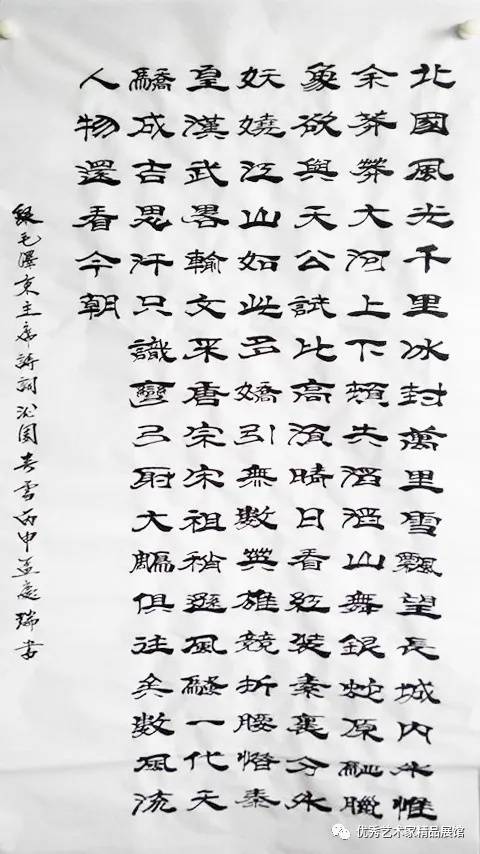 北國風光千里冰封萬里雪飄望長城内外惟
余莽莽大河上下頓失滔滔山舞銀蛇原馳臘
象欲與天公試比高須晴日看紅裝素裹分外
妖嬈江山如此多嬌引無數英雄競折腰惜秦
皇漢武畧輸文采唐宗宋祖稍遜風騷一代天
驕成吉思汗只識彎弓射大鵰俱往矣數風流
人物還看今朝
錄毛澤東主席詩詞沁園春雪丙申瑞書
优秀艺术家精品展馆